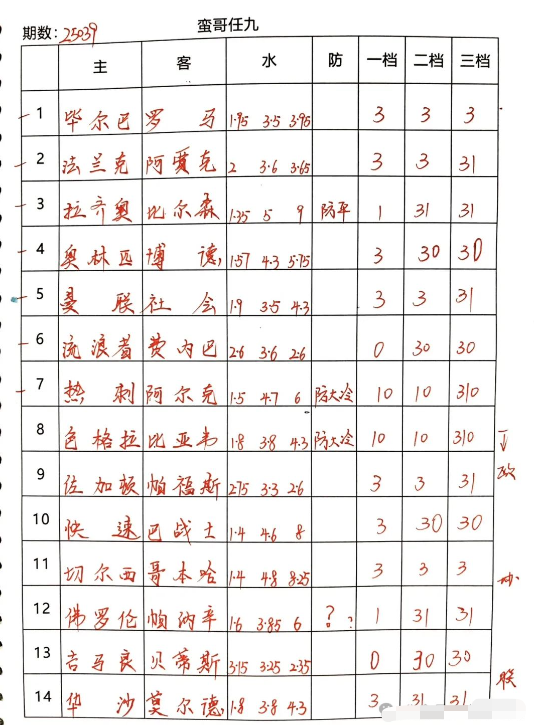 期数: 25039 蛮哥任九
主 客 水 防 一档 二档 三档
1 毕尔巴 罗马 1.95 3.5 3.95 3 3 3
2 法兰克 阿贾克 2 3.6 3.65 3 3 31
3 拉齐奥 比尔森 1.35 5 9 防平 1 31 31
4 奥林匹 博德 1.57 4.3 5.75 3 30 30
5 曼联 社会 1.9 3.5 4.3 3 3 31
6 流浪者 费内巴 2.6 3.6 2.6 0 30 30
7 热刺 阿尔克 1.5 4.7 6 防大冷 10 10 310
8 色格拉 比亚韦 1.8 3.8 4.3 防大冷 10 10 310
9 佐加顿 帕福斯 2.75 3.3 2.6 3 3 31
欧
10 快速 巴战士 1.4 4.6 8 3 30 30
11 切尔西 哥本哈 1.4 4.8 8.25 3 3 3
协
12 佛罗伦 帕纳辛 1.6 3.85 6 ? ? 1 31 31
13 吉马良 贝蒂斯 3.15 3.25 2.35 0 30 30
联
14 华沙 莫尔德 1.8 3.8 4.3 3 31 31